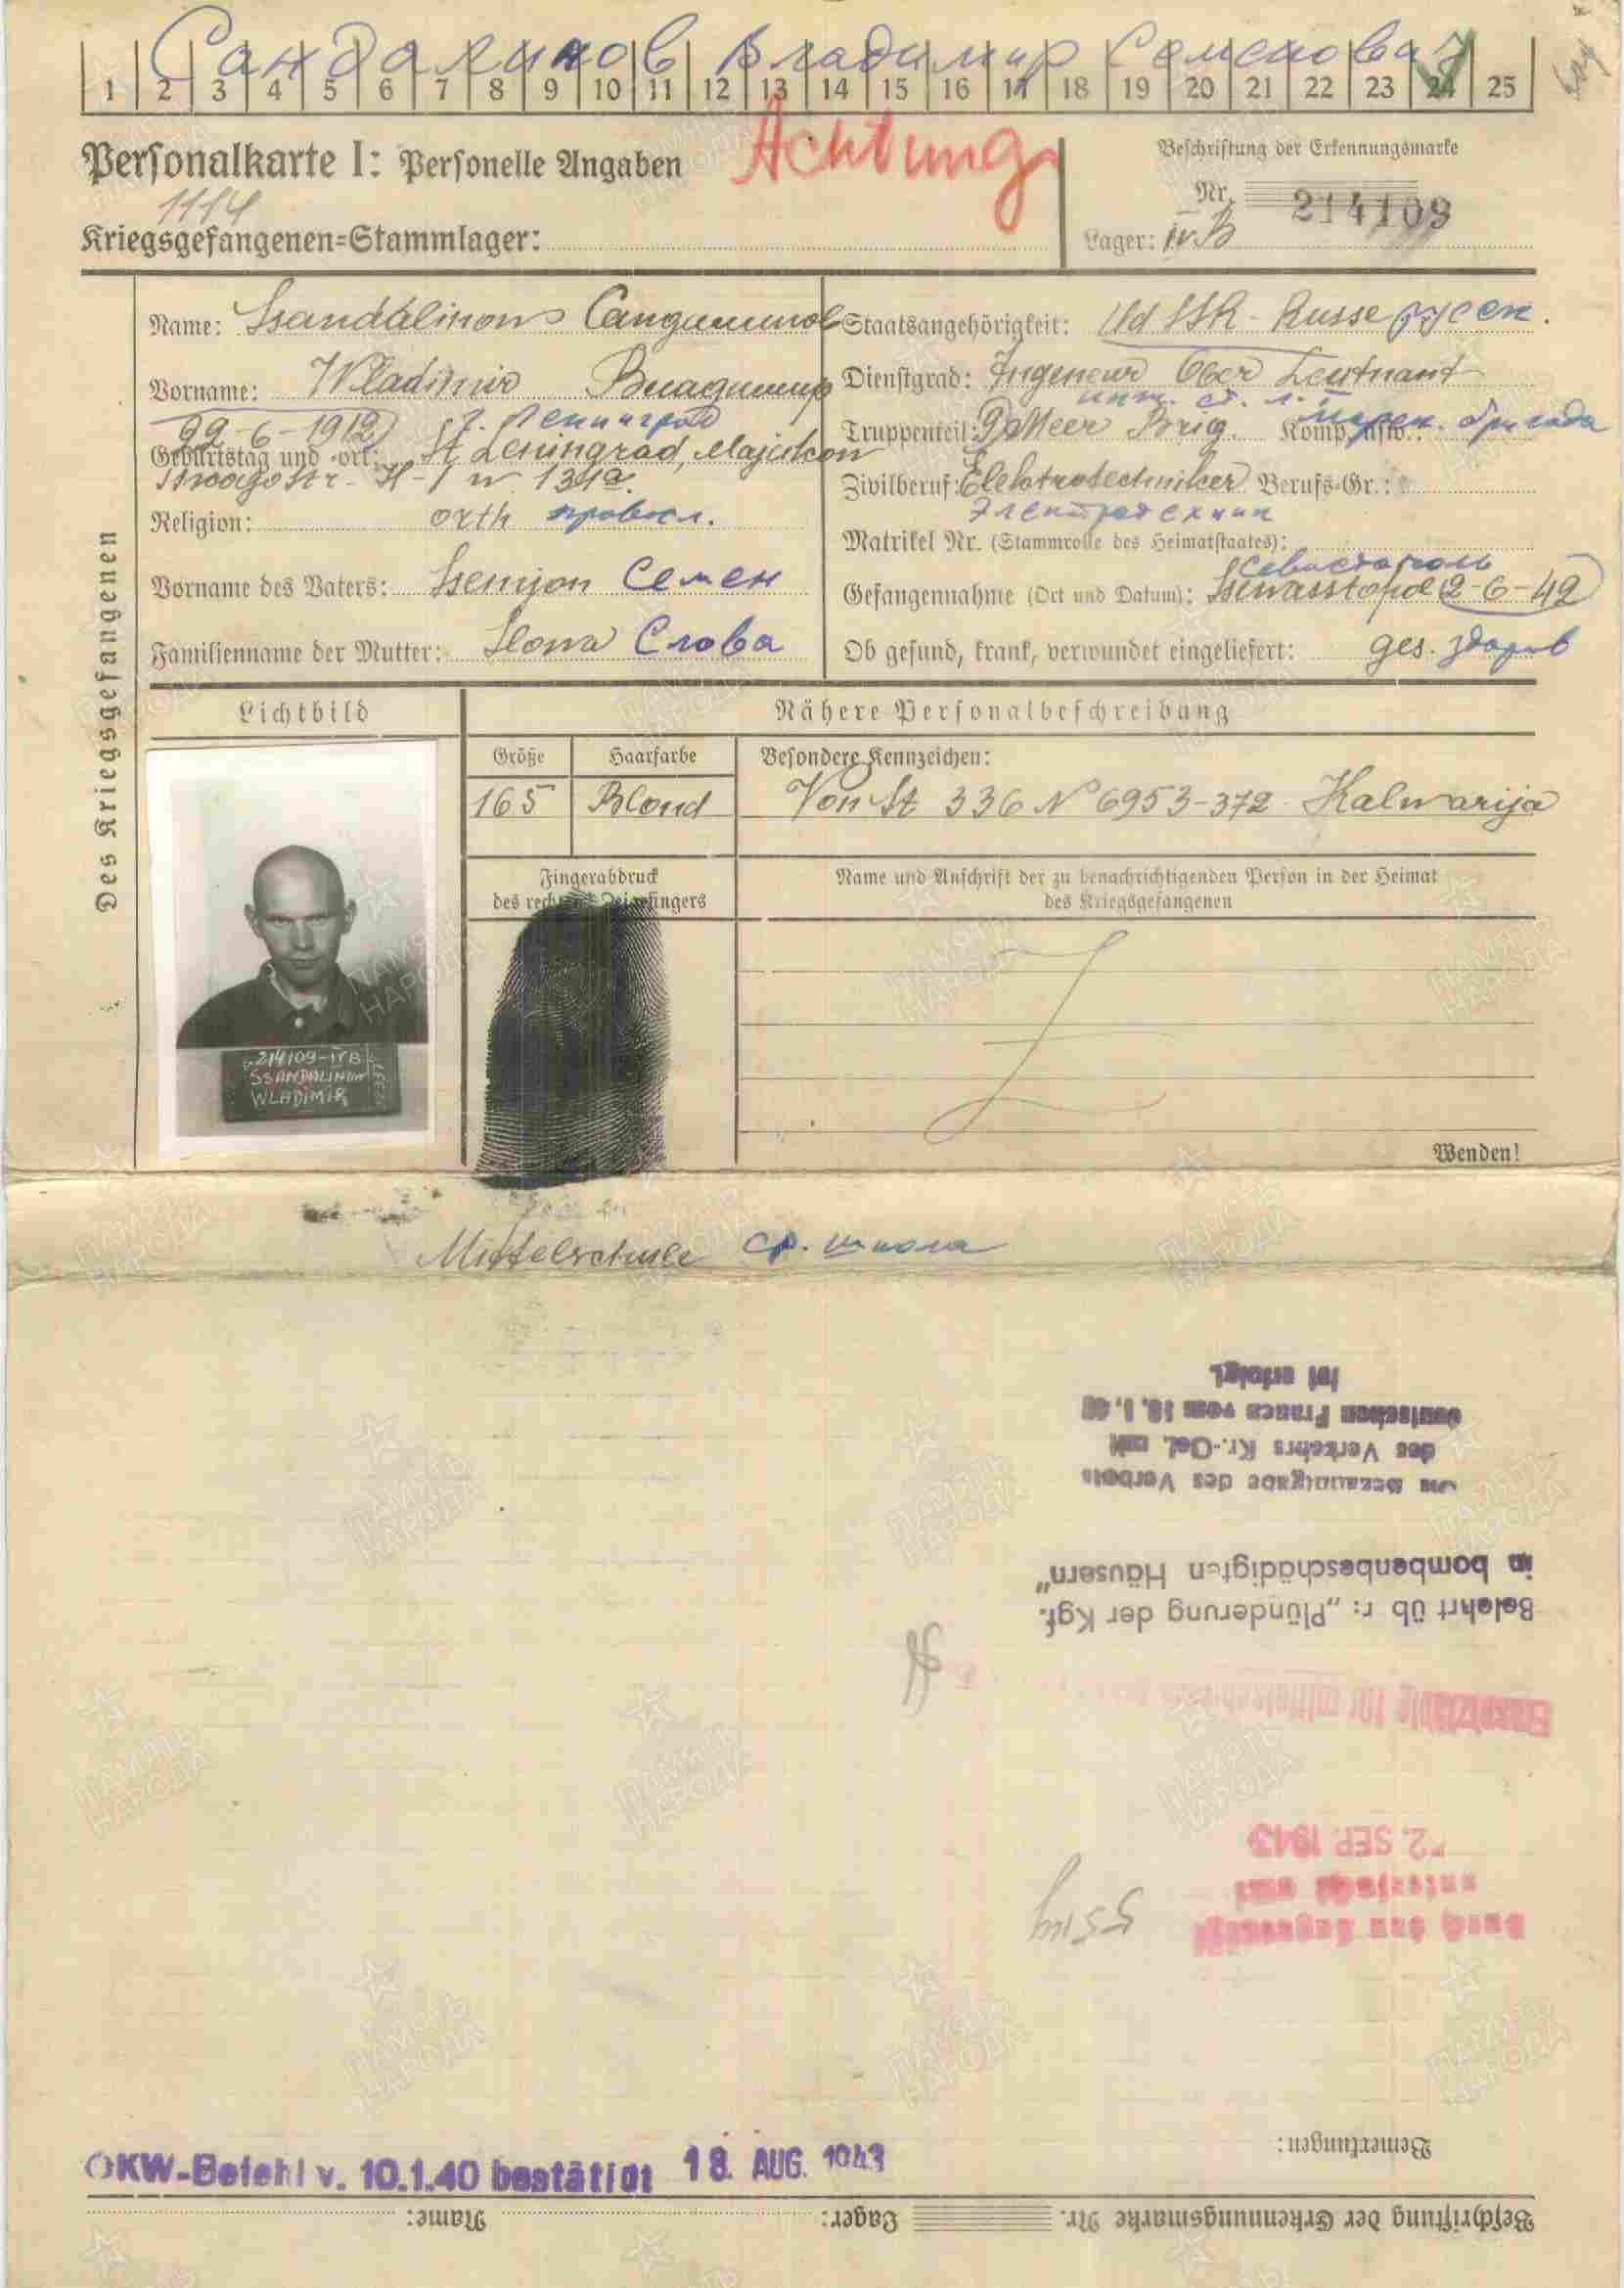 Сандалинов Владимир Семенович
1 2 3 4 5 6 7 8 9 10 11 12 13 14 15 16 17 18 19 20 21 22 23 24 25
Personalkarte I: Personelle Angaben
Achtung
Beschriftung der Erkennungsmarke
1114
Nr. 214109
Kriegsgefangenen=Stammlager:
Lager: IV B
Des Kriegsgefangenen
Name: Ssandalinow Сандалинов
Vorname: Wladimir Владимир
22-6-1912 г. Ленинград
Geburtstag und -ort: St. Leningrad,
134a
Religion: orth правосл.
Vorname des Vaters: Ssemjon Семен
Familienname der Mutter: Слова
Staatsangehörigkeit: UdSSR - Russe русск.
Dienstgrad: Ingeneur Ober Leutnant
инж. ст. л.
Truppenteil: Meer Brig. Komp. usw.: бригада
Zivilberuf: Elektrotechniker Berufs-Gr.:
Электротехник
Matrikel Nr. (Stammrolle des Heimatstaates):
Севастополь
Gefangennahme (Ort und Datum): Ssewasstopol 2-6-42
Ob gesund, krank, verwundet eingeliefert: ges. здоров
Lichtbild
Nähere Personalbeschreibung
Größe
Haarfarbe
Besondere Kennzeichen:
165
Blond
Von St 336 № 6953-372 Kalwarija
Fingerabdruck
des rechten Zeigefingers
Name und Anschrift der zu benachrichtigenden Person in der Heimat
des Kriegsgefangenen
214109-IVB
SSANDALINOW
WLADIMIR
Wenden!
Mittelschule ср. школа
Beschriftung der Erkennungsmarke Nr.
Lager:
Name:
Bemerkungen:
2. SEP. 1943
Belehrt über: „Plünderung der Kgf.
in bombenbeschädigten Häusern"
Die Bekanntgabe des Verbots
des Verkehrs Kr.-Gef. mit
deutschen Frauen vom
ist erfolgt.
OKW-Befehl v. 10.1.40 bestätigt 18. AUG. 1943
ПАМЯТЬ
НАРОДА